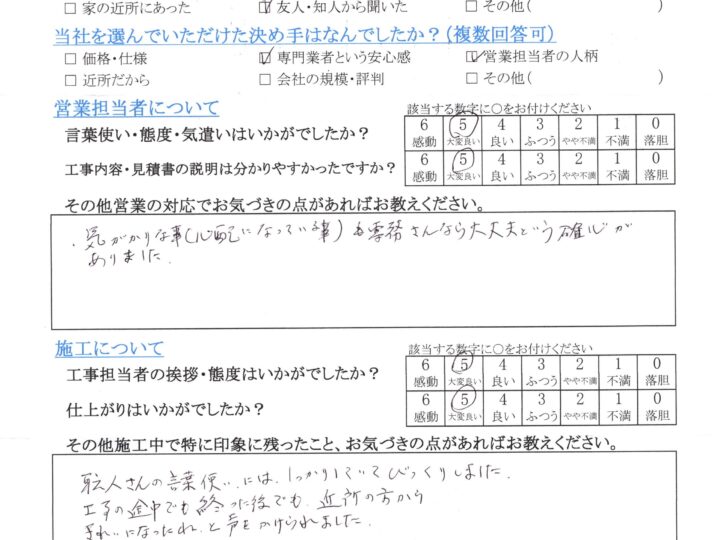 □ 家の近所にあった ☑ 友人・知人から聞いた □ その他( )
当社を選んでいただけた決め手はなんでしたか？(複数回答可)
□ 価格・仕様 ☑ 専門業者という安心感 ☑ 営業担当者の人柄
□ 近所だから □ 会社の規模・評判 □ その他( )
営業担当者について 該当する数字に○をお付けください
言葉使い・態度・気遣いはいかがでしたか？ 6 5 4 3 2 1 0
感動 大変良い 良い ふつう やや不満 不満 落胆
工事内容・見積書の説明は分かりやすかったですか？ 6 5 4 3 2 1 0
感動 大変良い 良い ふつう やや不満 不満 落胆
その他営業の対応でお気づきの点があればお教えください。
・気がかりな事(心配になっている事)も専務さんなら大丈夫という確心が
ありました.
施工について 該当する数字に○をお付けください
工事担当者の挨拶・態度はいかがでしたか？ 6 5 4 3 2 1 0
感動 大変良い 良い ふつう やや不満 不満 落胆
仕上がりはいかがでしたか？ 6 5 4 3 2 1 0
感動 大変良い 良い ふつう やや不満 不満 落胆
その他施工中で特に印象に残ったこと、お気づきの点があればお教えください。
職人さんの言葉使いには、しっかりしていてびっくりしました.
工事の途中でも終った後でも、近所の方から
きれいになったね、と声をかけられました.